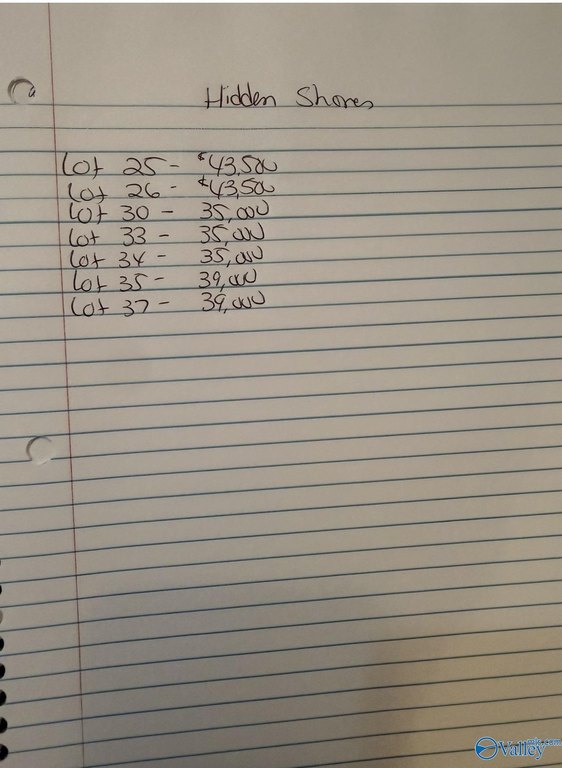 Hidden Shores
Lot 25 - $43,500
Lot 26 - $43,500
Lot 30 - 35,000
Lot 33 - 35,000
Lot 34 - 35,000
Lot 35 - 39,000
Lot 37 - 39,000
Valley